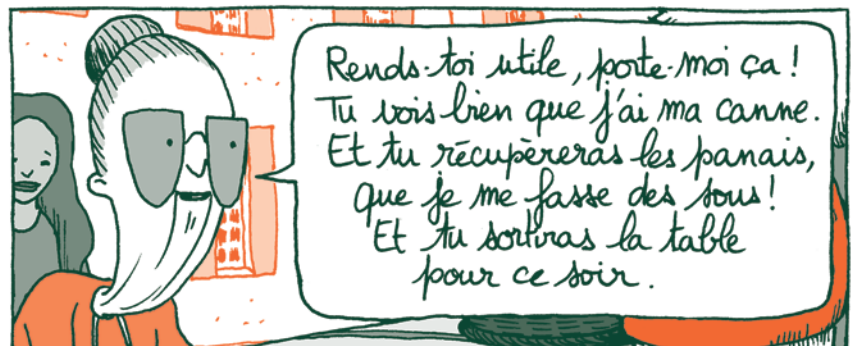 Rends-toi utile, porte-moi ça !
Tu vois bien que j'ai ma canne.
Et tu récupèreras les panais,
que je me fasse des sous !
Et tu sortiras la table
pour ce soir.